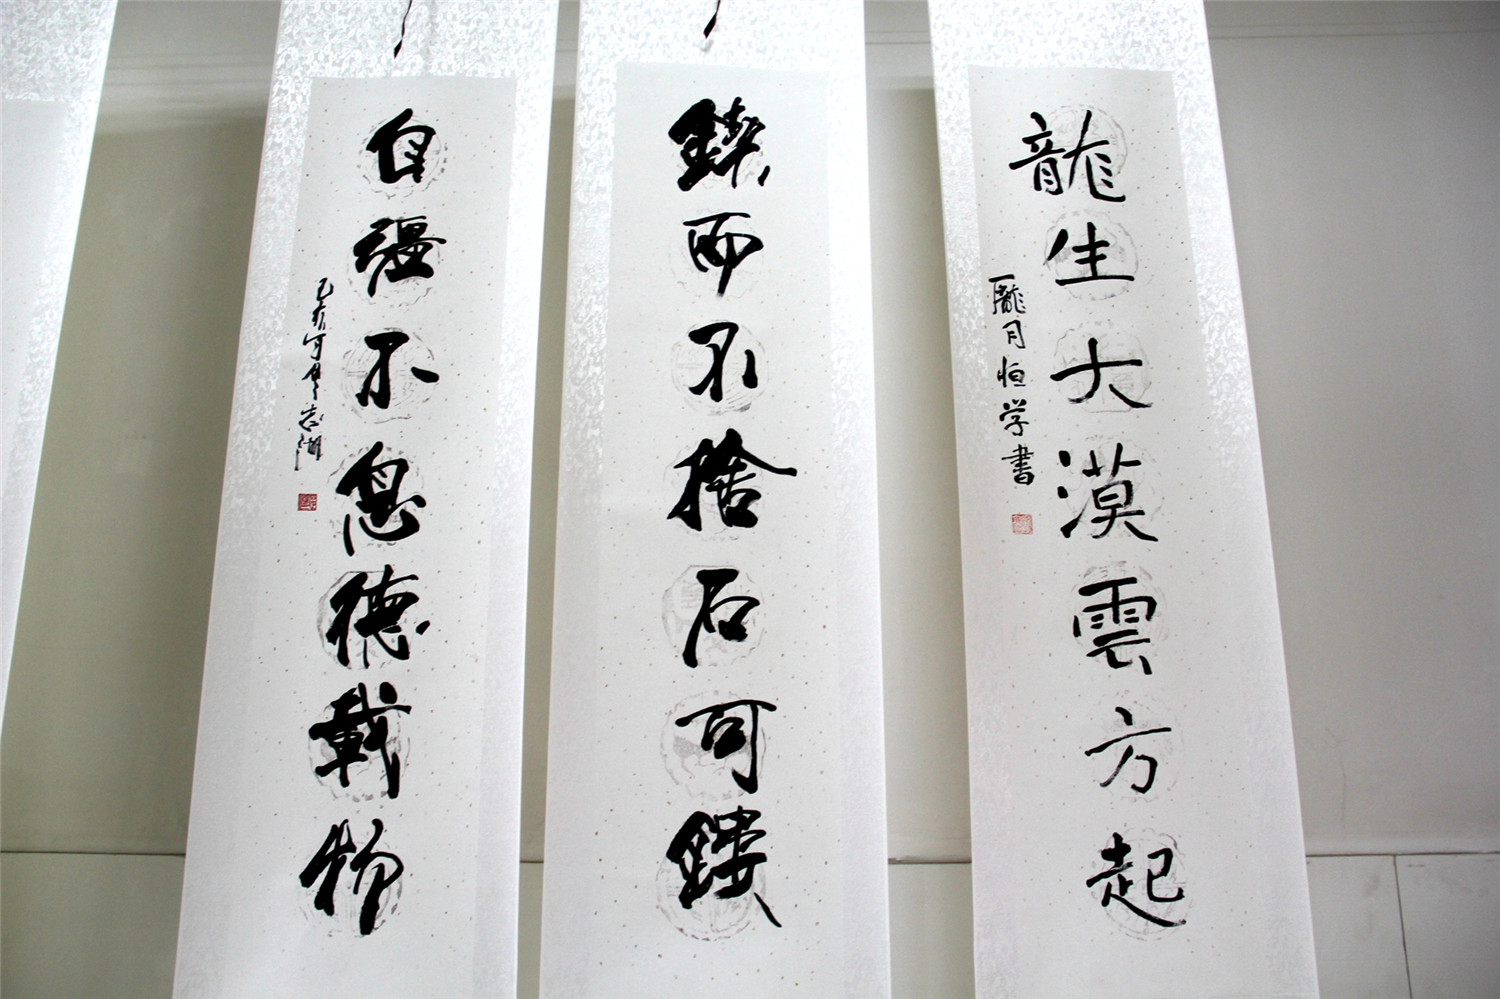 龍生大漠雲方起
月恒学書
鍥而不捨石可鏤
自強不息德載物